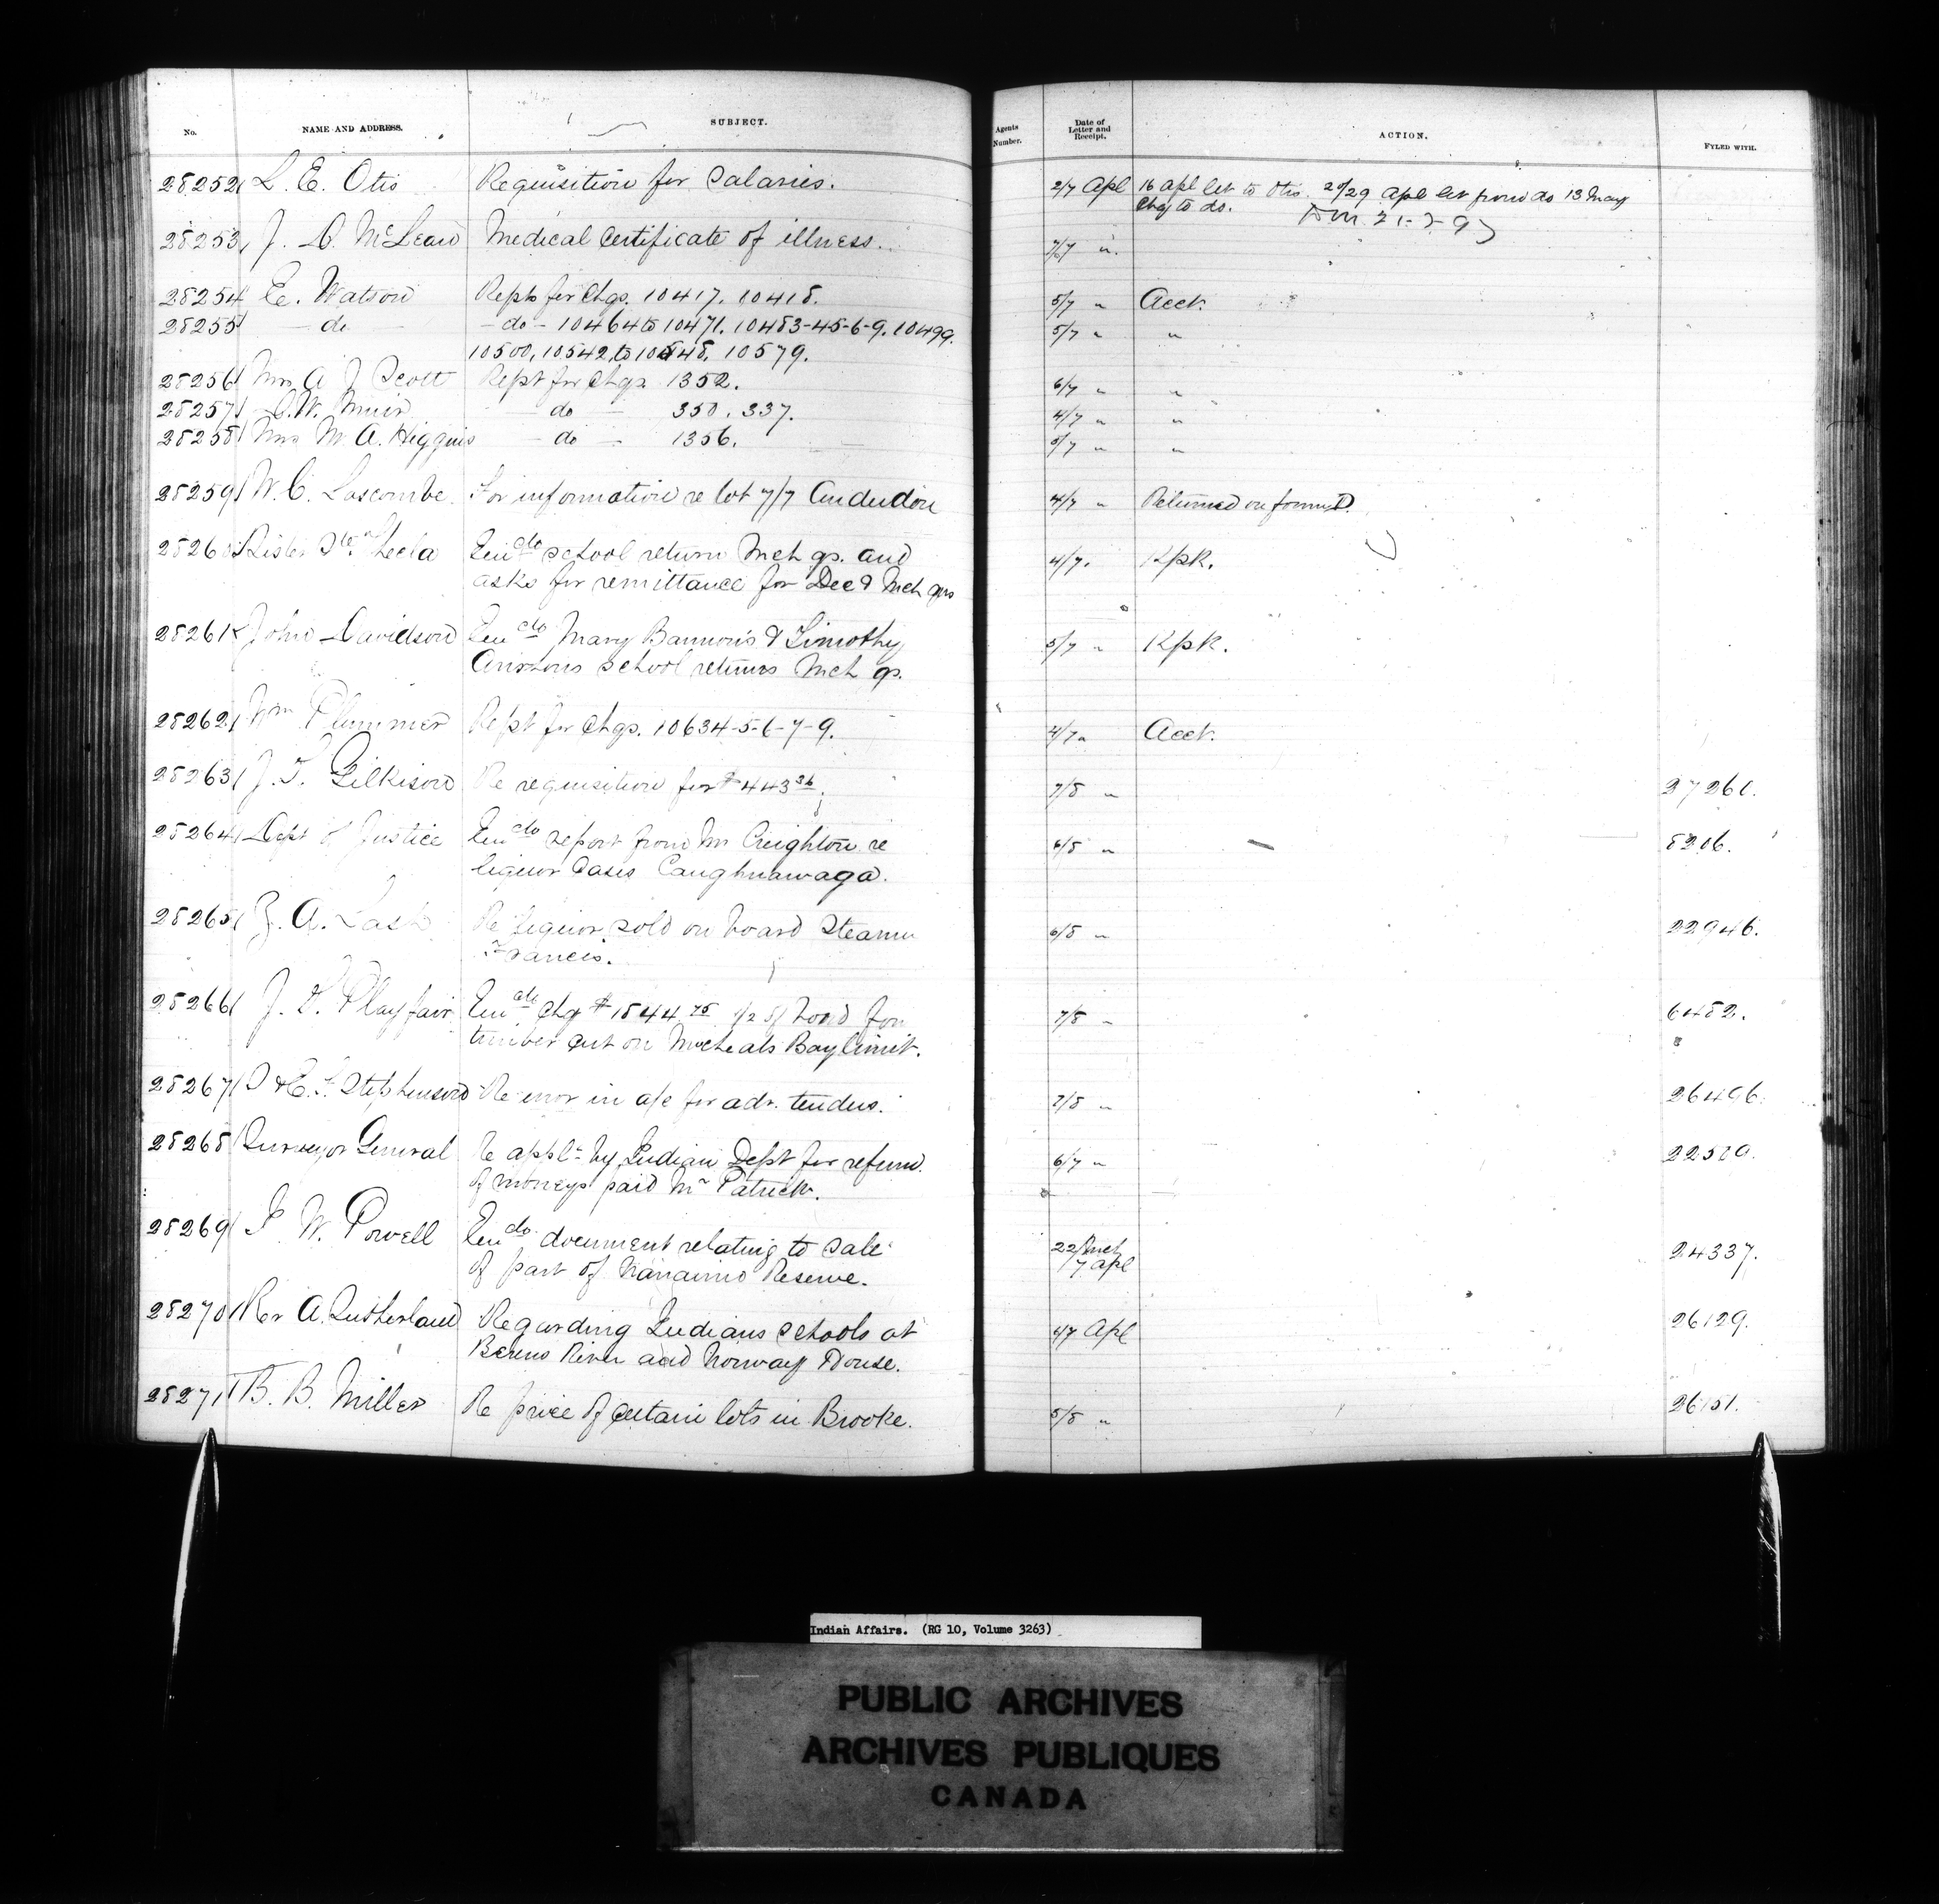 No. NAME AND ADDRESS. SUBJECT. Agents Number. Date of Letter and Receipt. ACTION. FYLED WITH.
28252 L. E. Otis Requisition for Salaries. 2/7 Apl 16 Apl let to Otis 29 Apl let from do 13 May
Chq to do.
28253 J. D. McLean Medical Certificate of illness. 7/7 "
28254 E. Watson Repts for Chqs. 10417. 10418. 5/7 " Acct.
28255 — do — — do — 10464 to 10471. 10483-4-5-6-9. 10499. 5/7 " "
10500, 10542, to 10548. 10579.
28256 Mrs A J Scott Rept for Chqs 1352. 6/7 " "
28257 C. W. Muir — do — 350. 337. 4/7 " "
28258 Mrs M. A. Higgins — do — 1356. 5/7 " "
28259 W. C. Loscombe. For information re lot 7/7 4/7 " Returned on form D.
28260 Sister Ste Thecla Encdo school return Mch qr. and 4/7. Kpk.
asks for remittance for Dec & Mch qrs
28261 John Davidson Encdo Mary Bannon's & Timothy 5/7 " Kpk.
school returns Mch qr.
28262 Wm Plummer Rept for Chqs. 10634-5-6-7-9. 4/7 " Acct.
28263 J. T. Gilkison Re requisition for $443 36. 7/8 " 27260.
28264 Dept of Justice Encdo report from Mr Creighton re 6/8 " 8206.
liquor Cases Caughnawaga.
28265 Z. A. Lash Re liquor sold on board Steamer 6/8 " 22946.
Francis.
28266 J. S. Playfair Encdo Chq $1844.75 1/2 of bond for 7/8 " 6482.
timber cut on Micheals Bay limit.
28267 Stephenson Re error in a/c for adv. tenders. 7/8 " 26496.
28268 Surveyor General Re appln by Indian Dept for refund 6/7 "
of moneys paid Mr Patrick.
28269 I. W. Powell Encdo document relating to Sale 22/Mch 24337.
of part of Nanaimo Reserve. 7 Apl
28270 Rev A. Sutherland Regarding Indians schools at 4/7 Apl 26129.
Berens River and Norway House.
28271 B. B. Miller Re price of certain lots in Brooke. 5/8 " 26151.
Indian Affairs. (RG 10, Volume 3263)
PUBLIC ARCHIVES
ARCHIVES PUBLIQUES
CANADA